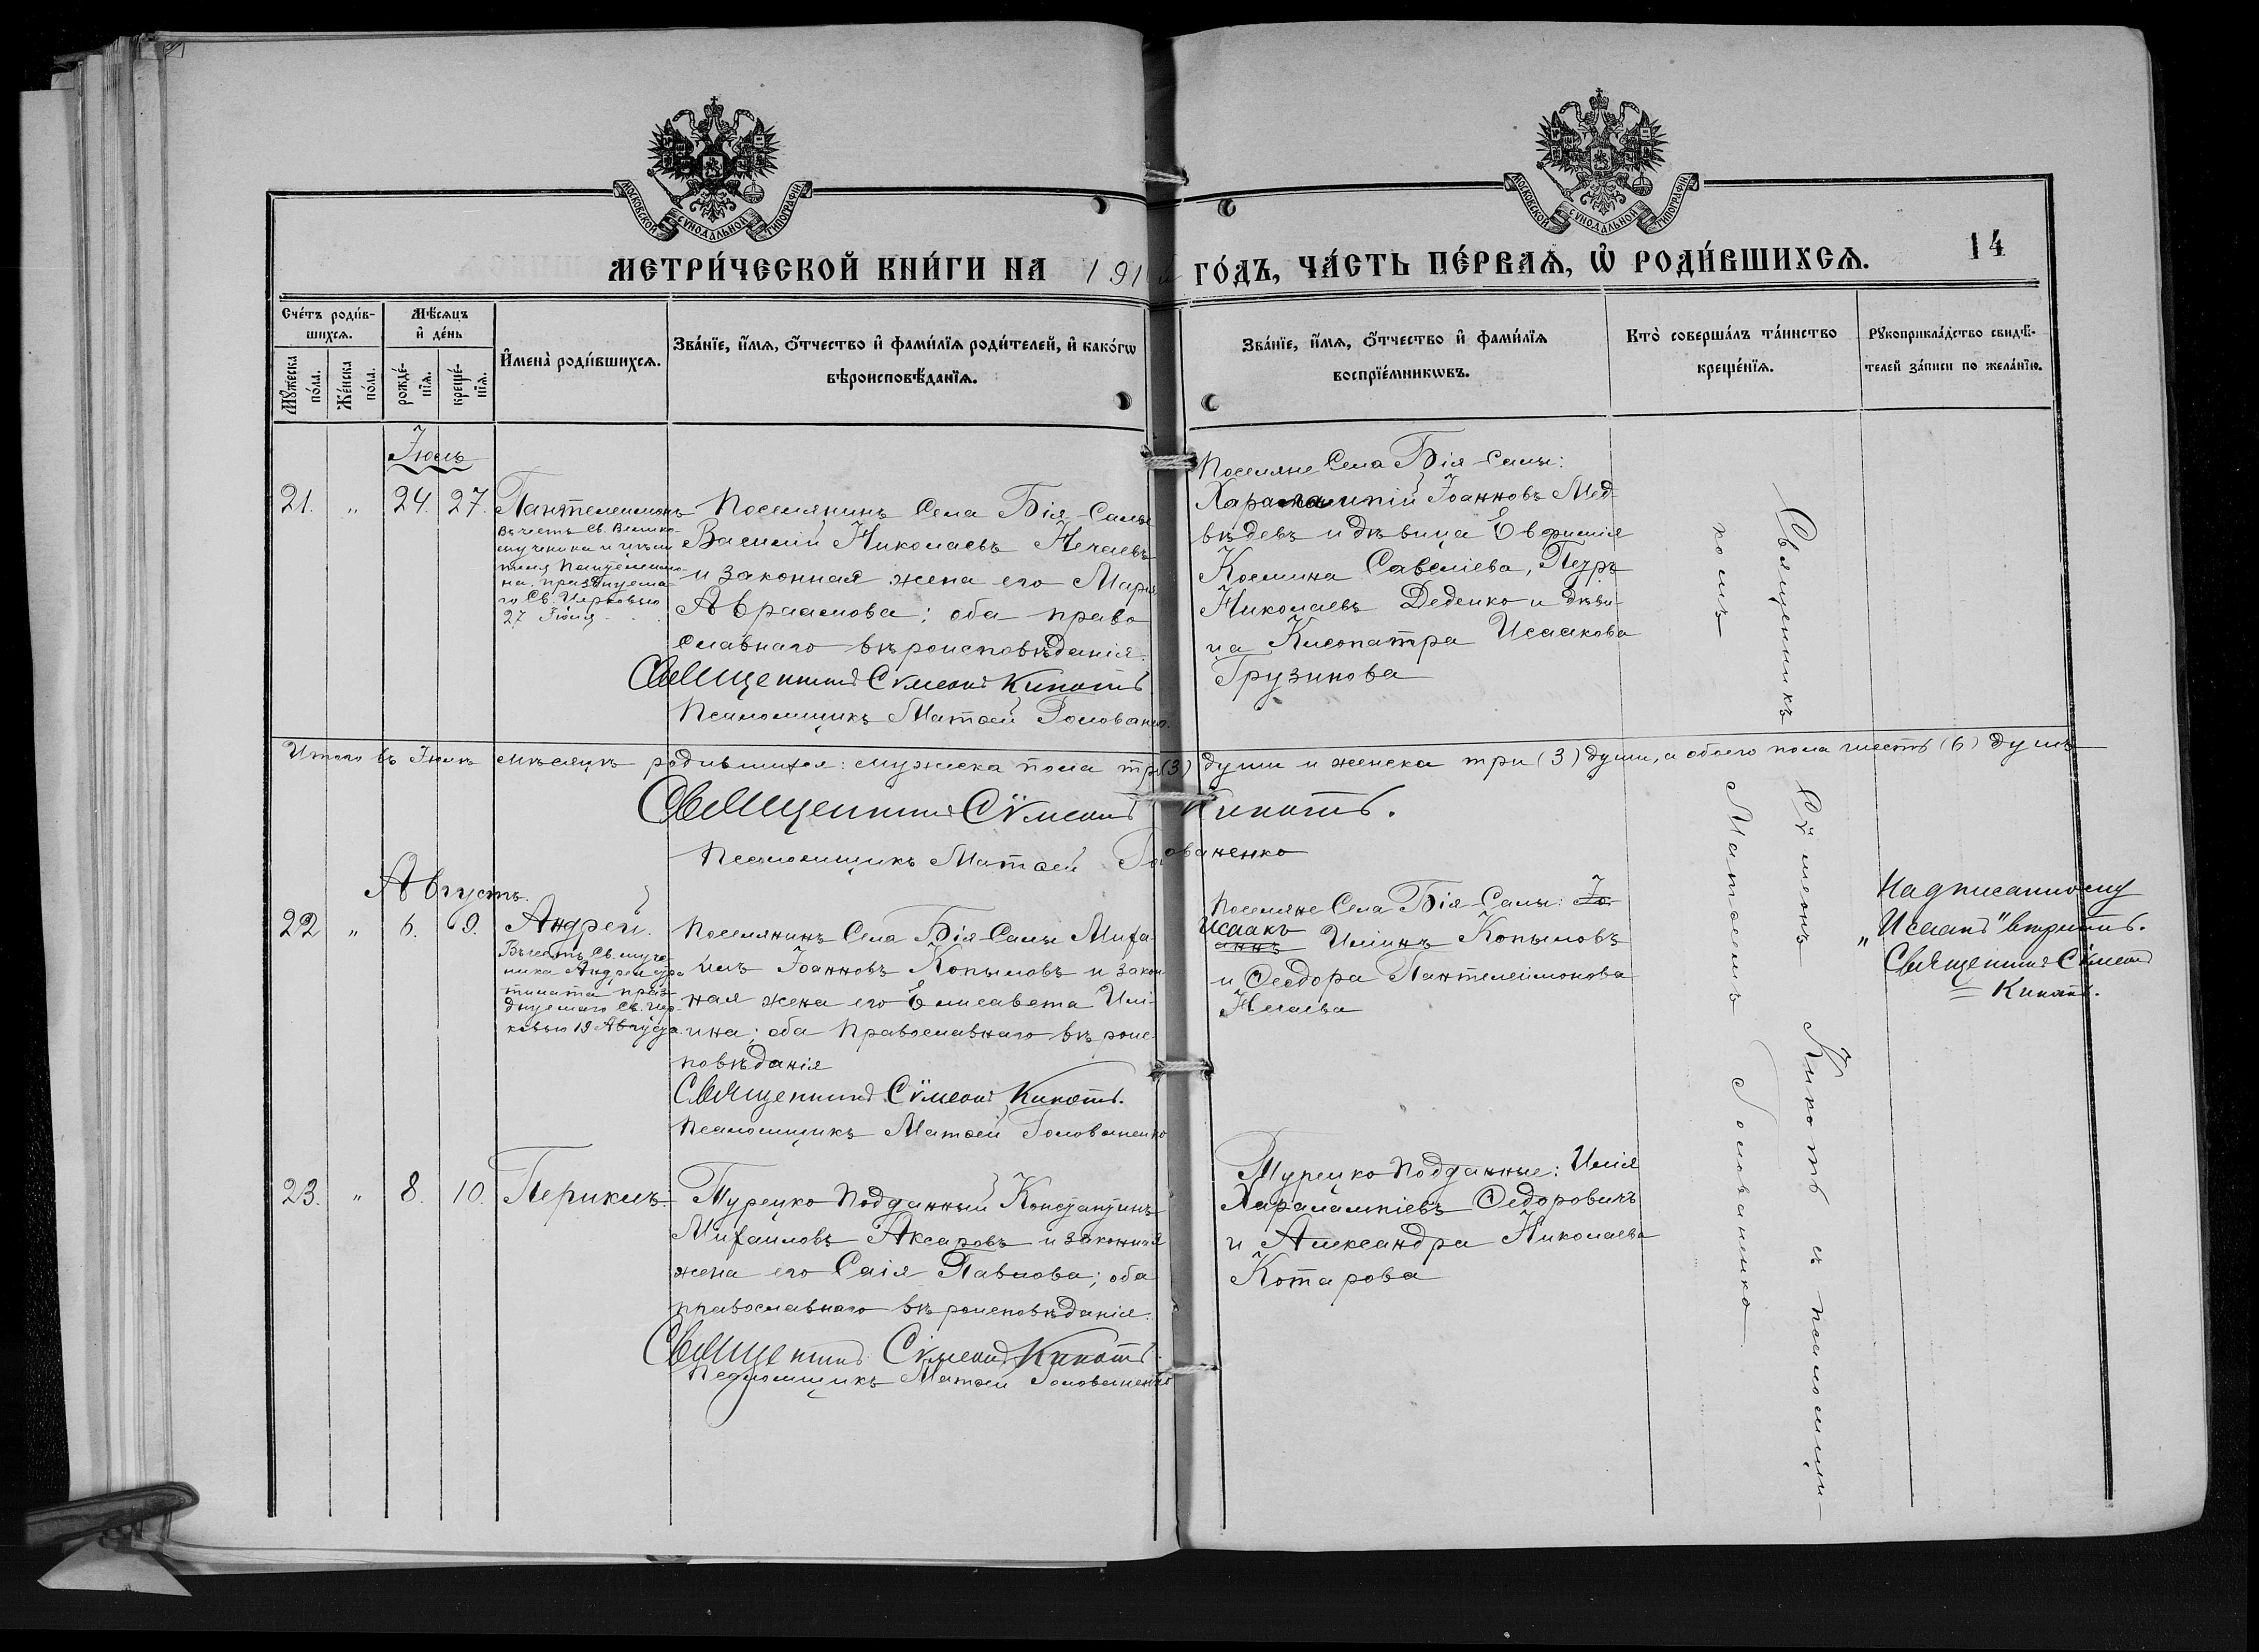 МОСКОВСКОЙ СѴНОДАЛЬНОЙ ТИПОГРАФІИ
МОСКОВСКОЙ СѴНОДАЛЬНОЙ ТИПОГРАФІИ
МЕТРИ́ЧЕСКОЙ КНИ́ГИ НА 191 ГО́ДЪ, ЧА́СТЬ ПЕ́РВАѦ, Ѡ҆ РОДИ́ВШИХСѦ.
14
Сче́тъ роди́в-
шихсѧ.
Мꙋ́жеска по́ла.
Же́нска по́ла.
Мѣ́сѧцъ
и҆ де́нь
рожде́-
нїѧ.
креще́-
нїѧ.
И҆мена̀ роди́вшихсѧ.
Зва́нїе, и҆́мѧ, ѻ҆́тчество и҆ фами́лїѧ роди́телей, и҆ како́гѡ
вѣроисповѣ́данїѧ.
Зва́нїе, и҆́мѧ, ѻ҆́тчество и҆ фами́лїѧ
воспрїе́мникѡвъ.
Кто̀ соверша́лъ та́инство
креще́нїѧ.
Рꙋкоприкла́дство свидѣ́-
телей за́писи по жела́нїю.
Іюль
21. " 24. 27. Пантелеимонъ
Въ честь Св. Велико-
мученика и цѣли
теля Пантелеимо-
на, празднуема-
го Св. Церковью
27 Іюля
Поселянинъ Села Бія-Салы
Василій Николаевъ Нечаевъ
и законная жена его Марія
Авраамова; оба право
славнаго вѣроисповѣданія.
Священникъ Сѵмеонъ Кикоть
Псаломщикъ Матѳей Голованко.
Поселяне Села Бія-Салы:
Харалампій Іоанновъ Мед-
вѣдевъ и дѣвица Евфимія
Космина Савеліева, Петръ
Николаевъ Деденко и дѣви-
ца Клеопатра Исаакова
Грузинова
Итого въ Іюлѣ мѣсяцѣ родившихся: мужеска пола три (3) души и женска три (3) души, а обоего пола шесть (6) душъ
Священникъ Сѵмеонъ Кикоть.
Псаломщикъ Матѳей Голованенко
Августъ.
22 " 6. 9. Андрей.
Въ честь Св. муче-
ника Андрея Стра
тилата праз-
днуемаго Св. Цер-
ковью 19 Августа.
Поселянинъ Села Бія-Салы Миха-
илъ Іоанновъ Копыловъ и закон
ная жена его Елисавета Илі-
ина; оба Православнаго вѣроис-
повѣданія
Священникъ Сѵмеонъ Кикоть.
Псаломщикъ Матѳей Голованенко
Поселяне Села Бія-Салы: Іо-
Исаакъ
аннъ Иліинъ Копыловъ
и Ѳеодора Пантелеимонова
Нечаева
Надписанному
„Исаакъ" вѣрить.
Священникъ Сѵмеонъ
Кикоть.
23. " 8. 10. Периклъ.
Турецко Подданный Константинъ
Михайловъ Аксаровъ и законная
жена его Саія Павлова; оба
православнаго вѣроисповѣданія.
Священникъ Сѵмеонъ Кикоть.
Псаломщикъ Матѳей Голованенко
Турецко Подданные: Илія
Харалампіевъ Ѳедоровичъ
и Александра Николаева
Котарова
Священникъ Сѵмеонъ Кикоть съ псаломщи-
комъ Матѳеемъ Голованенко